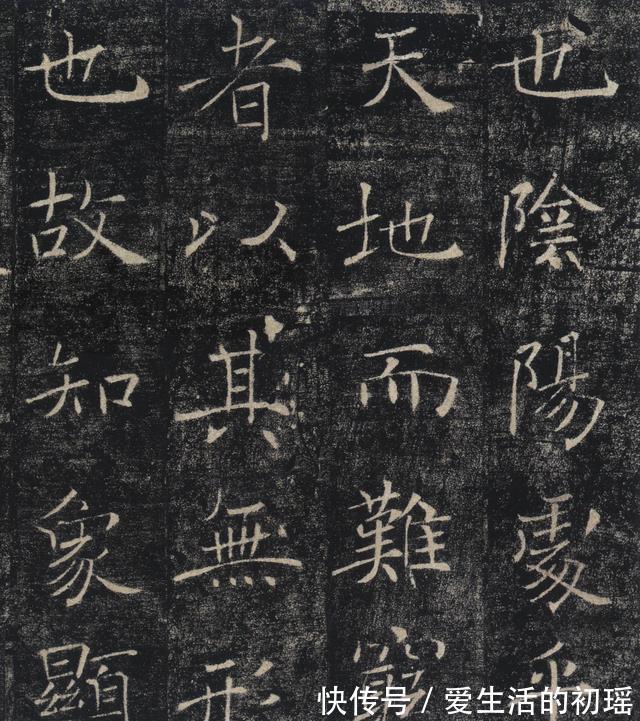 也陰陽處乎
天地而難窮
者以其無形
也故知象顯
快传号 / 爱生活的初瑶